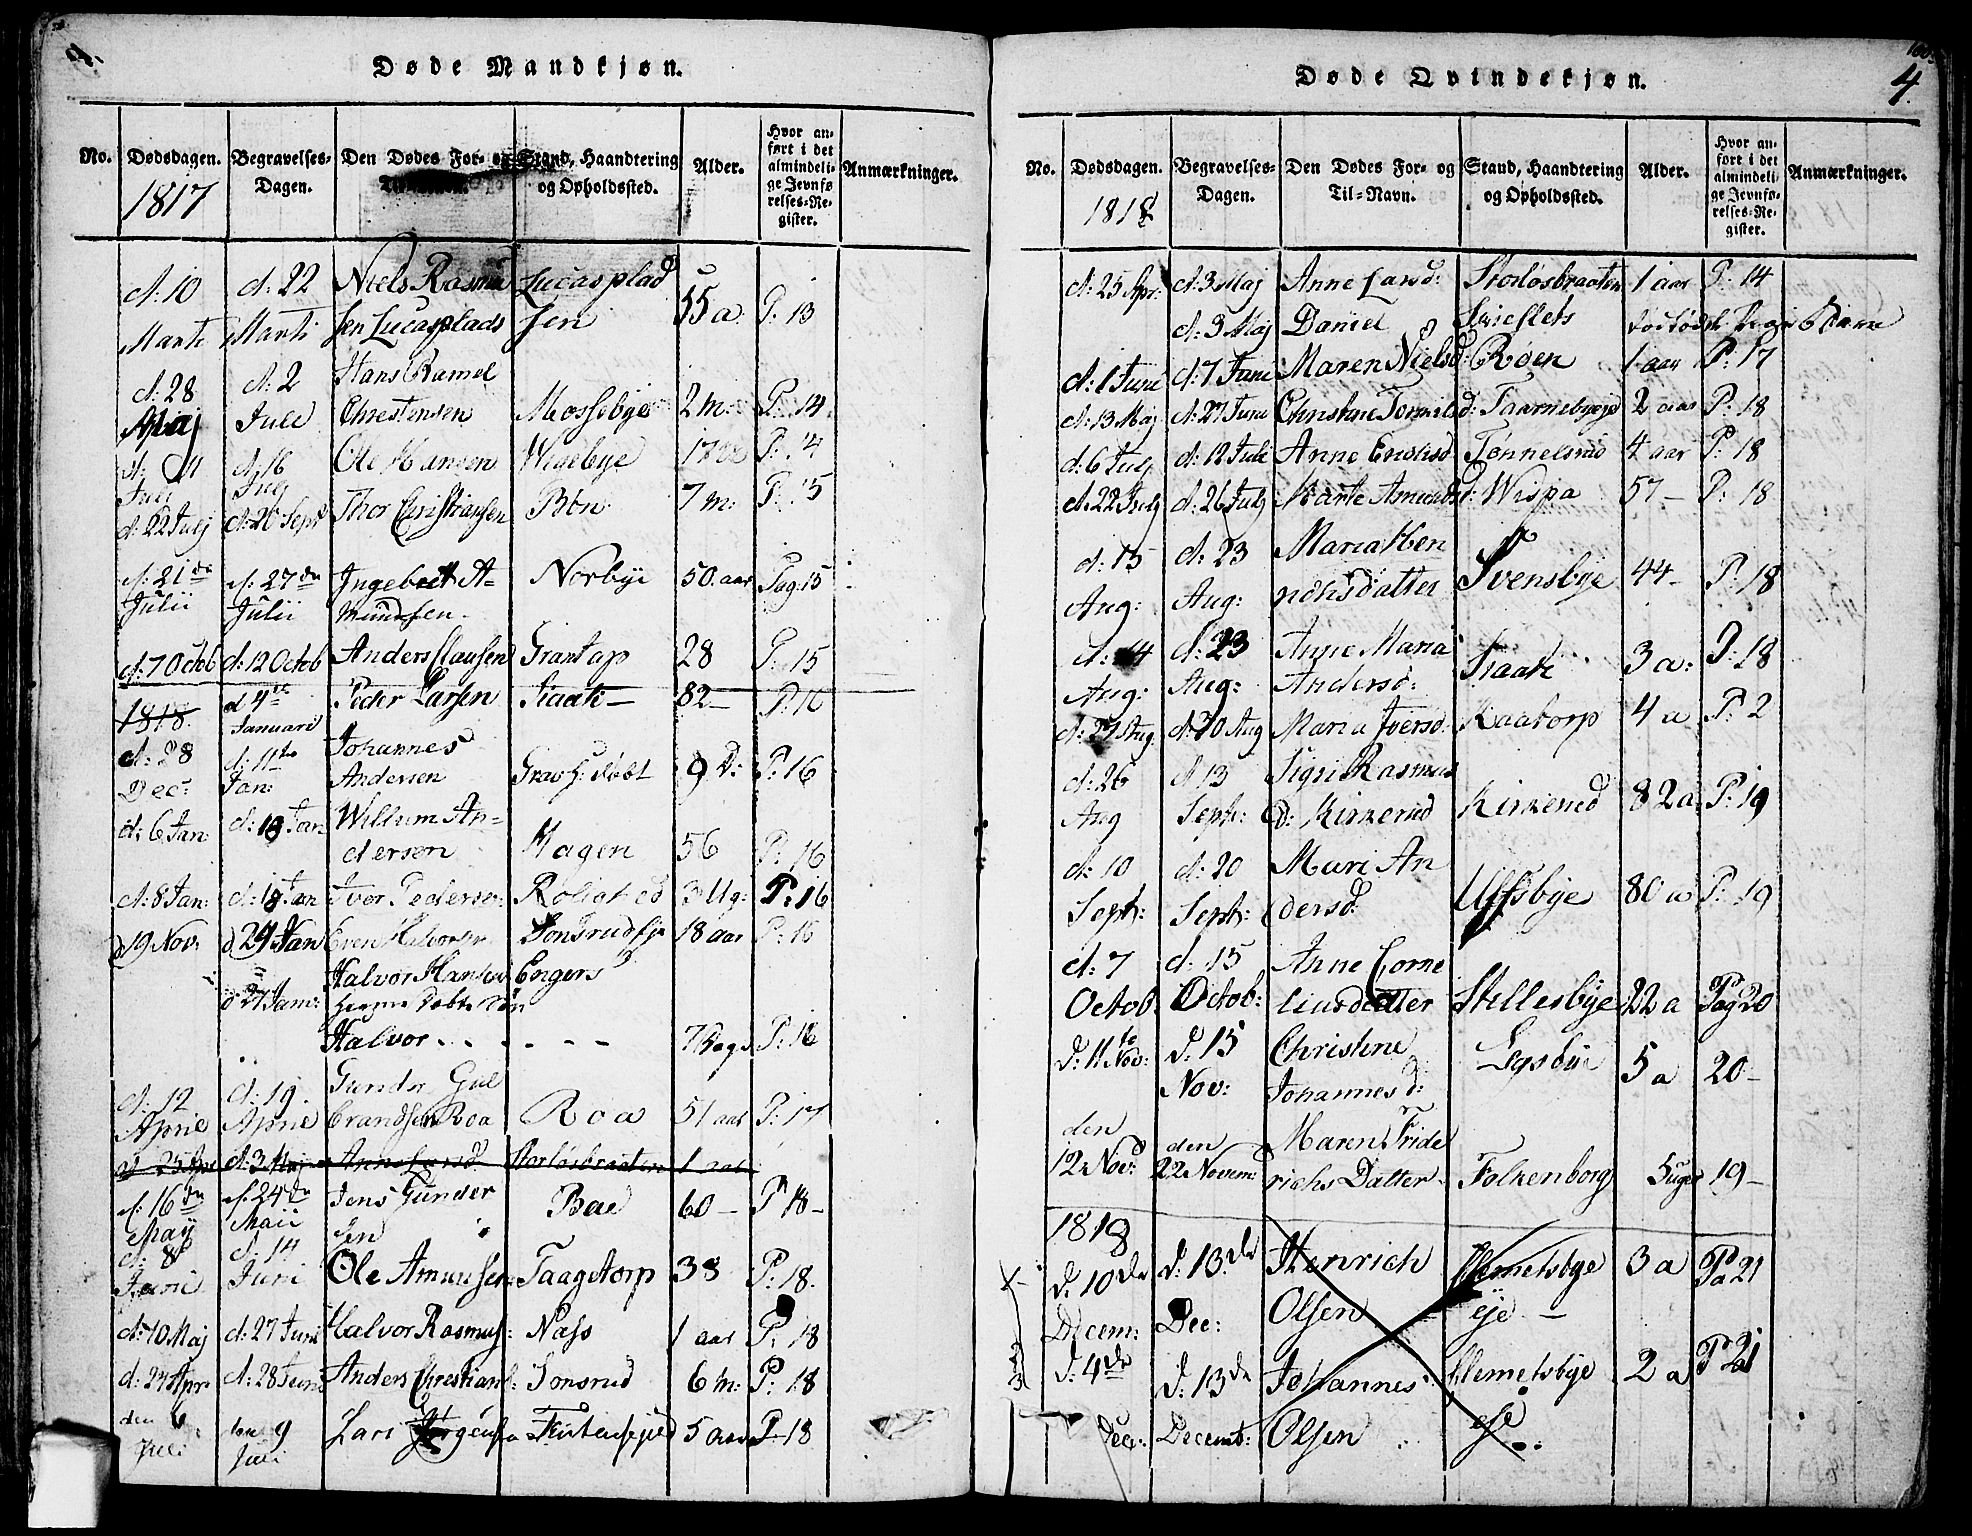 Døde Mandkjøn.
No. Dødsdagen. Begravelses-Dagen. Den Dødes For- og Stand, Haandtering og Opholdssted. Alder. Hvor anført i det almindelige Jevnførelses-Register. Anmærkninger.
1817
d: 10 Marti d: 22 Marti Niels Rasmu sen Lucasplads Lucasplad sen 55 a: P: 13
d: 28 Maj d: 2 Juli Hans Ramel Christensen Mossebye 2 m: P: 14
d: 11 Julj d: 16 Julj Ole Hansen Wigebye P: 14
d: 22 Julj d: 20 Sept Thor Christiansen Bøn 7 m: P: 15
d: 21de Julii d: 27de Julii Ingebret A= mundsen. Norbye 50 aar Pag: 15
d: 7 Octob d: 12 Octob Anders Clausen Grantap 28 P: 15
1818. d 4de Januari Peder Larsen Kaate 82 P: 16
d: 28 Dec: d: 11te Jan: Johannes Andersen 9 D: P: 16
d: 6 Jan: d: 18 Jan Willum An= dersen Hagen 56 P: 16
d: 8 Jan: d: 18 Jan Iver Pedersen 3 Ug: P: 16
d 19 Nov: d 29 Jan Even Halvorsen 18 aar P: 16
d 27 Jan: Halvor Hansen Engers
Halvor - - - - - 7 Dage P: 16
d: 12 Aprie d: 19. Aprie Gunder Gul brandsen Roa Roa 51 aar P: 17
d: 25 Apr d: 3 Maj Anne Larsd Storløsbraaten 1 aar
d: 16de May d: 24de Maii Jens Gunder sen Bae 60 - P 18 -
d: 8 Juni d: 14 Juni Ole Amunsen Taagetorp 38 P: 18.
d: 10 Maj d: 27 Juni Halvor Rasmus: Næss 1 aar P: 18
d: 24 Apr: d: 28 Juni Anders Christians: Sonsrud 6 m: P: 18
den 6 Juli den 9 Juli Lars Jørgensen 5 aar P: 18
Døde Qvindekjøn. 4.
No. Dødsdagen. Begravelses-Dagen. Den Dødes For- og Til-Navn. Stand, Haandtering og Opholdssted. Alder. Hvor anført i det almindelige Jevnførelses-Register. Anmærkninger.
1818
d: 25 Apr: d: 3 Maj Anne Larsd: Storløsbraaten 1 aar P: 14
d: 3 Maj Daniel
d: 1 Juni d: 7 Juni Maren Nielsd: Røen 1 aar P: 17
d: 13 Maj d: 27 Juni Christine 2 aar P: 18
d: 6 Julj d: 12 Juli Anne Tønnelsrud 4 aar P: 18
d: 22 Julj d: 26 Julj Marte Amundsd: Wispa 57 - P: 18
d: 15 Aug: d: 23 Aug: Maria Hen richsdatter Svensbye 44 - P: 18
d: 14 Aug: d: 23 Aug: Anne Maria Andersd: Kaate 3 a: P: 18
d: 27 Aug. d: 30 Aug Maria Iversd: Kaatorp 4 a P: 2
d: 26 Aug d 13 Sept: Sigri Rasmus d: Kirkerud Kirkerud 82 a P: 19
d: 10 Sept: d: 20 Sept: Mari An dersd: Ulfsbye 80 a P: 19
d: 7 Octob: d: 15 Octob: Anne Corne liusdatter Skellesbye 22 a Pag 20
d: 11te Nov: d: 15 Nov: Christine Johannesd: Egsbye 5 a 20 -
den 12 Nov: den 22 Novem: Maren Fride richs Datter Folkenborg 5 uger 19 -
1818
d: 10de Decem: d: 13de Dec: Henrich Olsen Clemetsbye eje - 3 a Pa 21
d: 4de Dec: d: 13de Decemt: Johannes Olsen Clemetsbye eje 2 a P 21